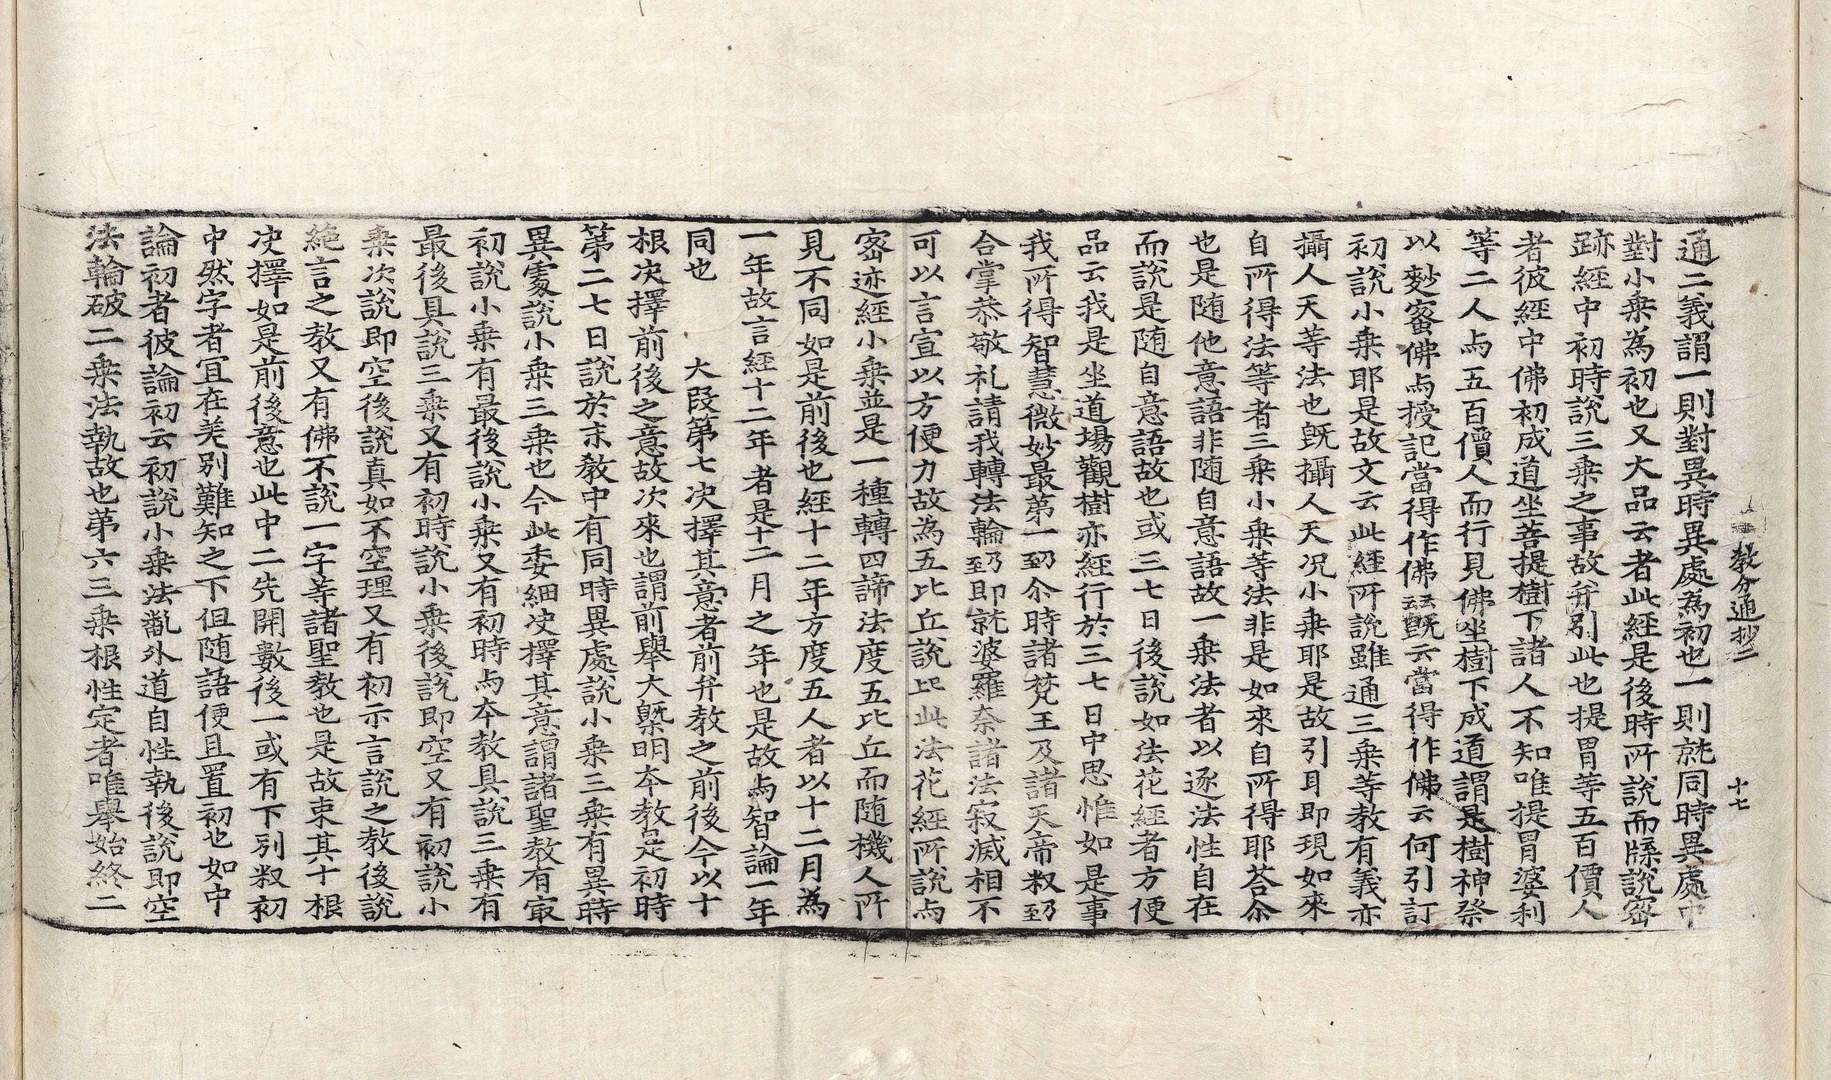 教分通抄二　十七
通二義謂一則對異時異處為初也一則就同時異處中
對小乗為初也又大品云者此經是後時所說而牒說密
跡經中初時說三乗之事故并引此也提胃等五百價人
者彼經中佛初成道坐菩提樹下諸人不知唯提胃婆利
等二人与五百價人而行見佛坐樹下成道謂是樹神祭
以麨蜜佛与授記當得作佛云云既云當得作佛云何引訂
初說小乗耶是故文云此經所說雖通三乗等教有義亦
攝人天等法也既攝人天况小乗耶是故引耳即現如來
自所得法等者三乗小乗等法非是如來自所得耶荅尒
也是随他意語非随自意語故一乗法者以逐法性自在
而說是随自意語故也或三七日後說如法花經者方便
品云我是坐道場觀樹亦經行於三七日中思惟如是事
我所得智慧微妙最第一乃至尒時諸梵王及諸天帝叔乃至
合掌恭敬礼請我轉法輪乃至即就婆羅奈諸法寂滅相不
可以言宣以方便力故為五比丘說已上此法花經所說与
密迹經小乗並是一種轉四諦法度五比丘而随機人所
見不同如是前後也經十二年方度五人者以十二月為
一年故言經十二年者是十二月之年也是故与智論一年
同也　　大段第七决擇其意者前弁教之前後今以十
根决擇前後之意故次來也謂前舉大槩明夲教是初時
第二七日說於末教中有同時異處說小乗三乗有異時
異處說小乗三乗也今此委細决擇其意謂諸聖教有㝡
初說小乗有最後說小乗又有初時与夲教具說三乗有
最後具說三乗又有初時說小乗後說即空又有初說小
乗次說即空後說真如不空理又有初示言說之教後說
絶言之教又有佛不說一字等諸聖教也是故束其十根
决擇如是前後意也此中二先開數後一或有下別叙初
中然字者宜在差別難知之下但随語便且置初也如中
論初者彼論初云初說小乗法翫外道自性執後說即空
法輪破二乗法執故也苐六三乗根性定者唯舉始終二